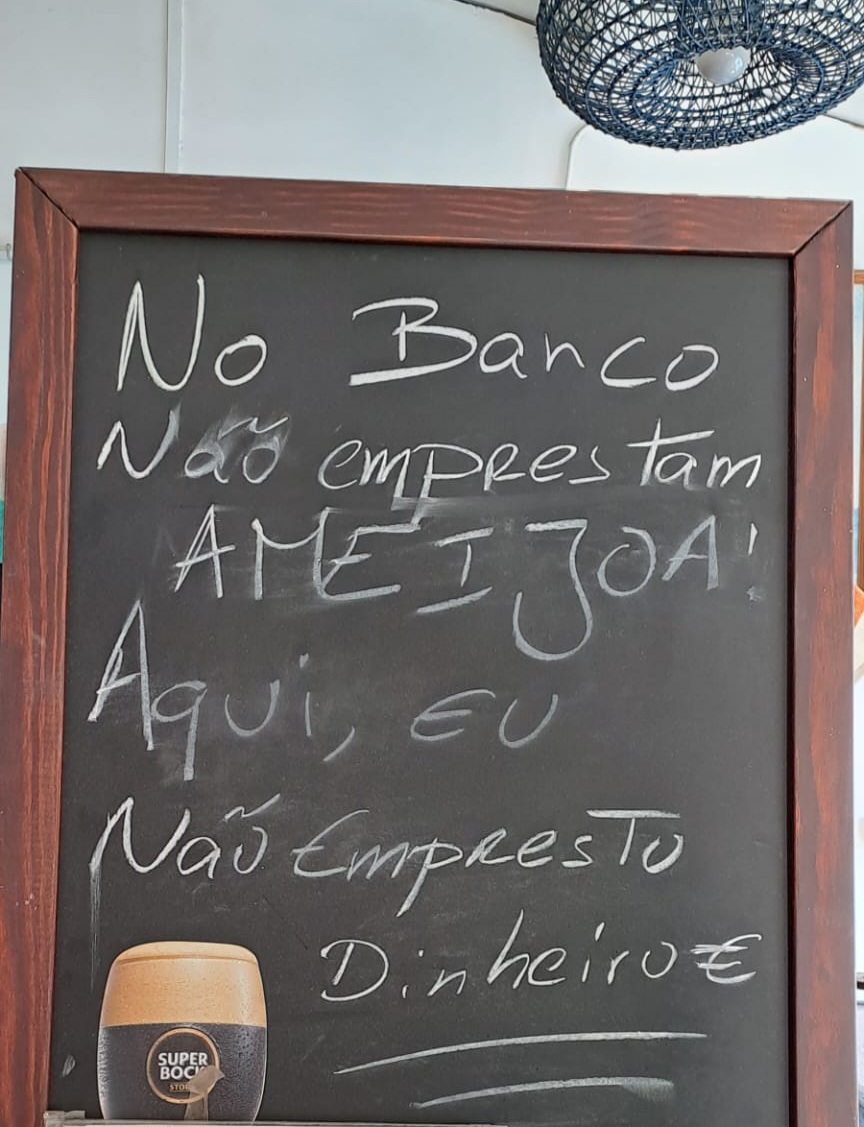 No Banco
Não emprestam
AMEIJOA!
Aqui, eu
Não Empresto
Dinheiro €
SUPER
BOCK